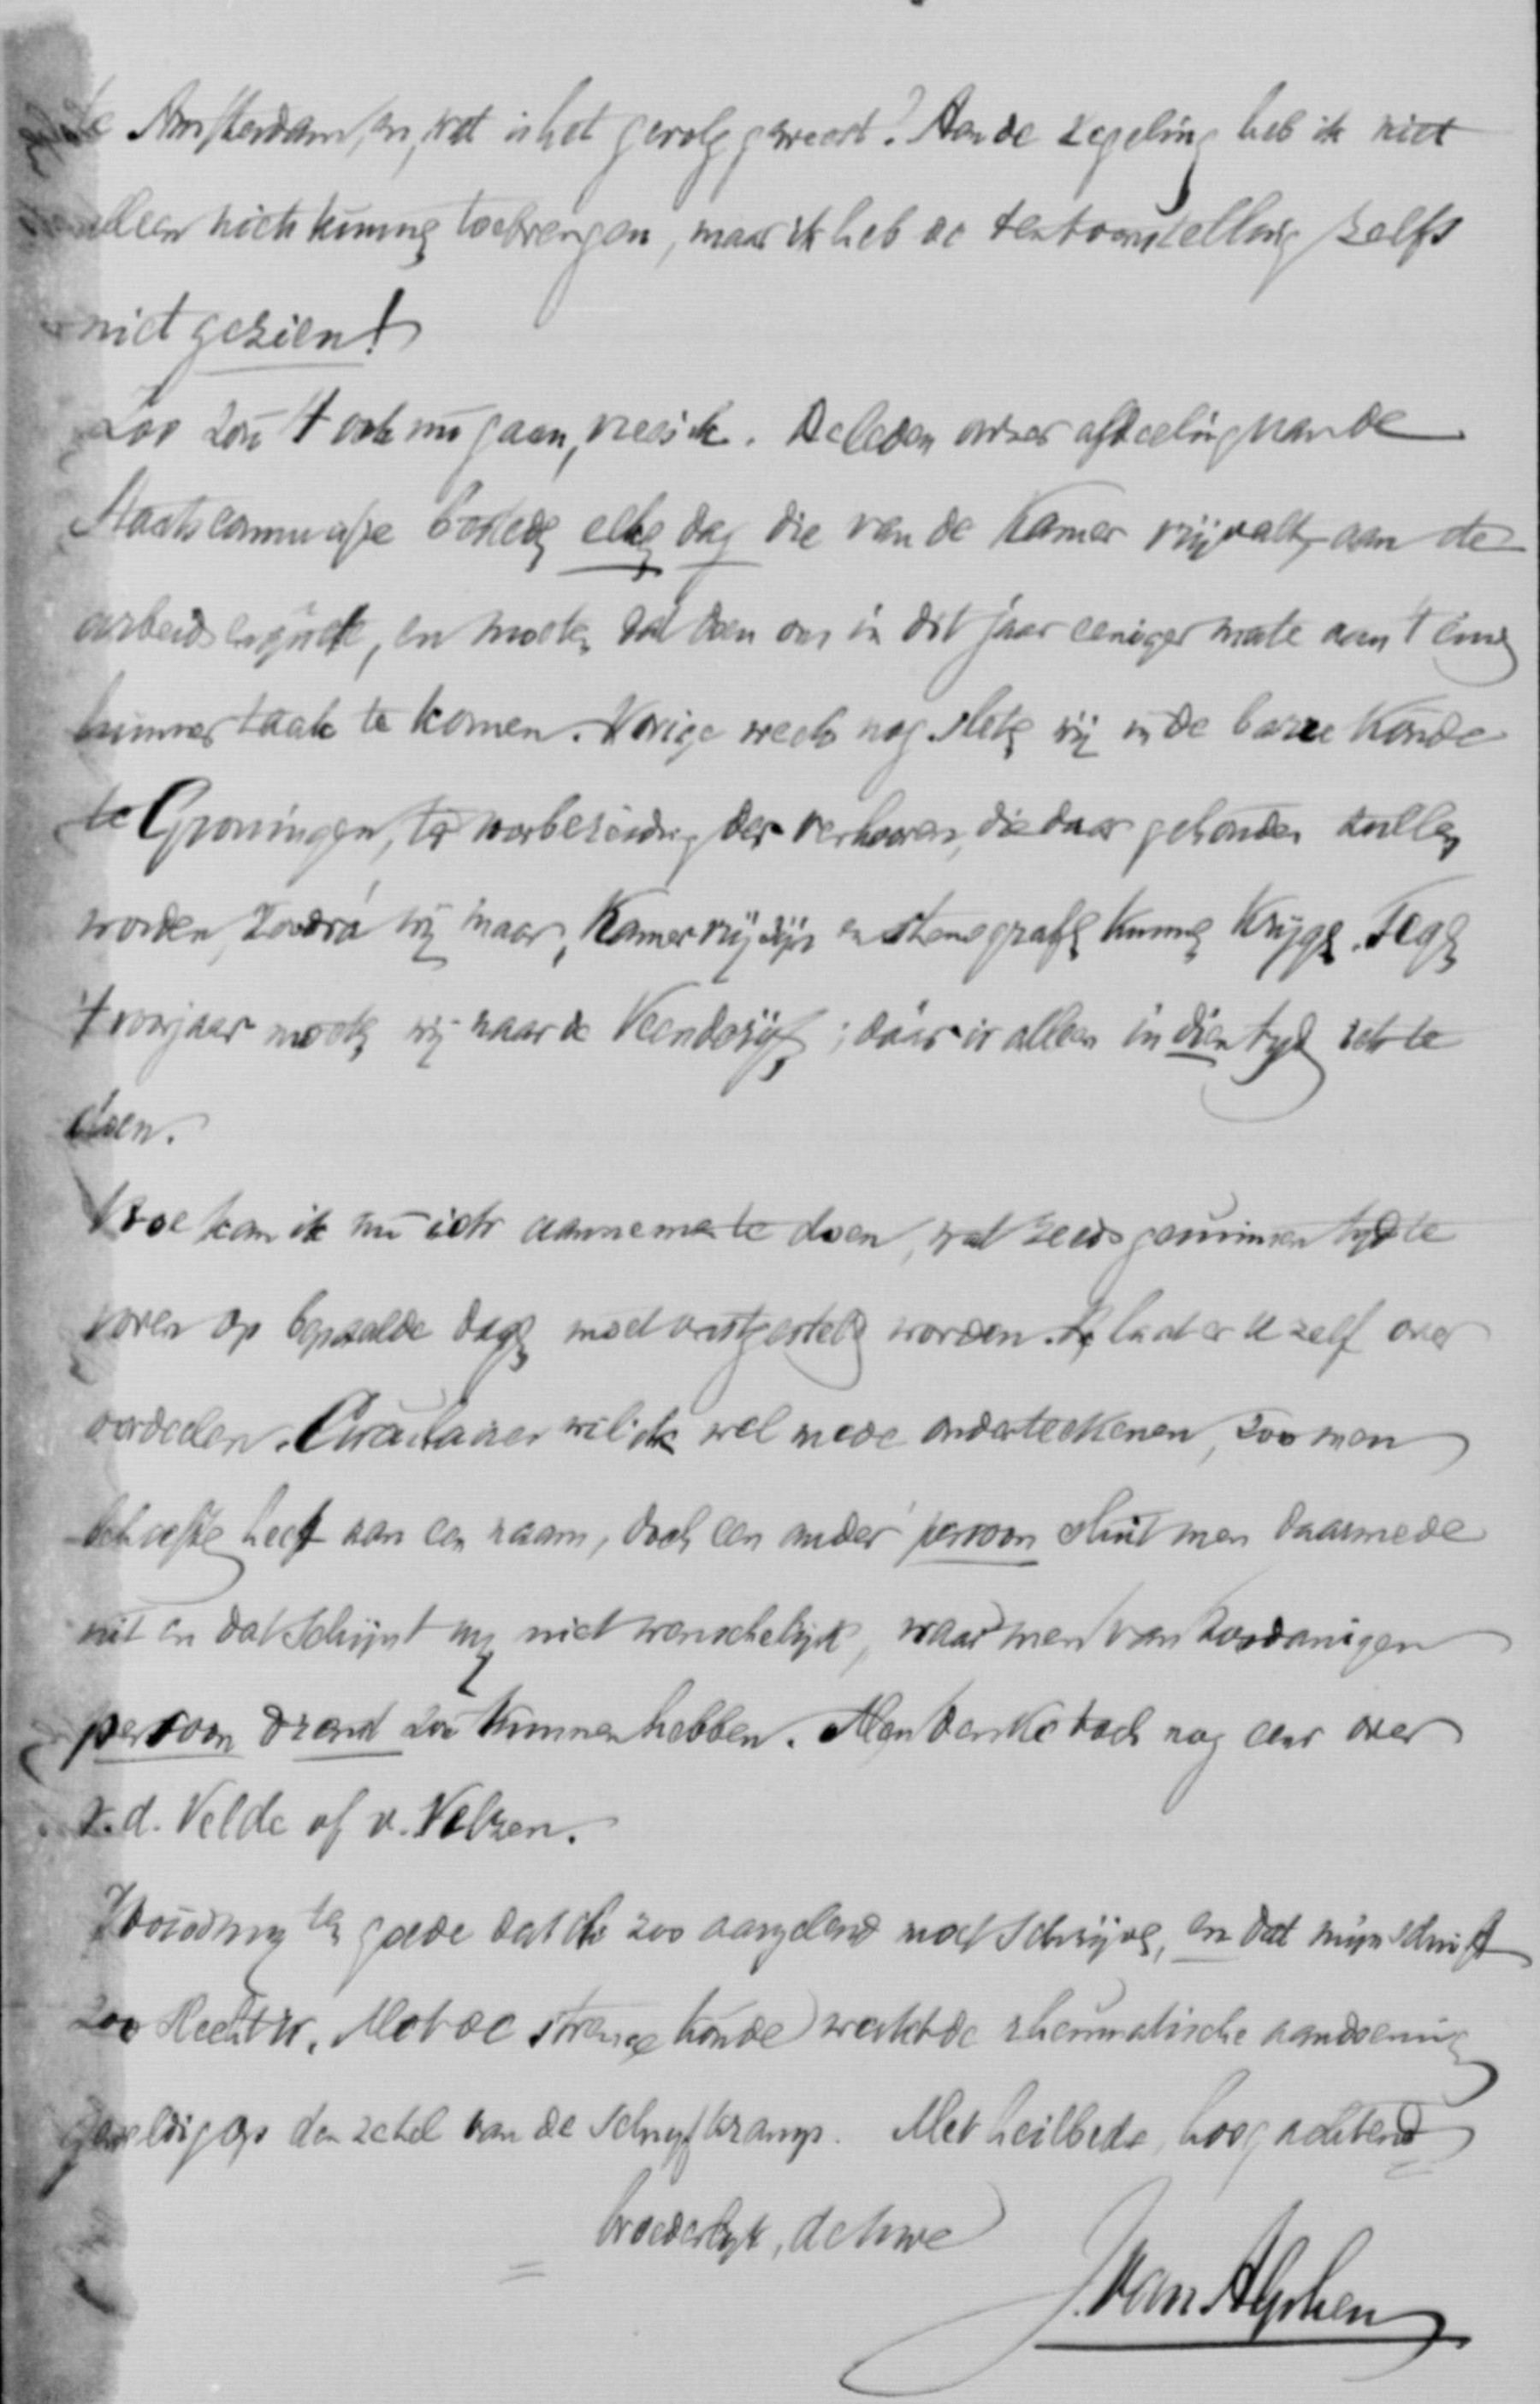 te Amsterdam, en, wat is het gevolg geweest? Aan de regeling heb ik niet
alleen niets kunnen toebrengen, maar ik heb de tentoonstelling zelfs
niet gezien!
Zoo zou 't ook nu gaan, vrees ik. De leden onzer afdeeling van de
Staatscommissie besteden elken dag die van de Kamer vrij valt, aan de
arbeidsenquête, en moeten dat doen om in dit jaar eenigermate aan 't einde
hunner taak te komen. Vorige week nog sleten wij in de barre koude
te Groningen, ter voorbereiding der verhooren, die daar gehouden zullen
worden, zoodra wij maar, Kamervrij zijn en stenografen kunnen krijgen. Tegen
't voorjaar moeten wij naar de Veenderijen; dáár is alleen in dien tijd iets te
doen.
Hoe kan ik nu iets aannemen te doen, wat reeds geruimen tijd te
voren op bepaalde dagen moet vastgesteld worden. Ik laat er U zelf over
oordeelen. Circulaires wil ik wel mede onderteekenen, zoo men
behoefte heeft aan een naam, doch een ander persoon sluit men daarmede
uit en dat schijnt mij niet wenschelijk, waar men van zoodanigen
persoon dienst zou kunnen hebben. Men denke toch nog eens over
v. d. Velde of v. Velzen.
Houd mij ten goede dat ik zoo aangeland moet schrijven, en dat mijn schrift
zoo slecht is. Met de strenge koude werkt de rheumatische aandoening
geweldig op den zetel van de schrijfkramp. Met heilbede, hoogachtend
broederlijk, de Uwe
J. van Alphen